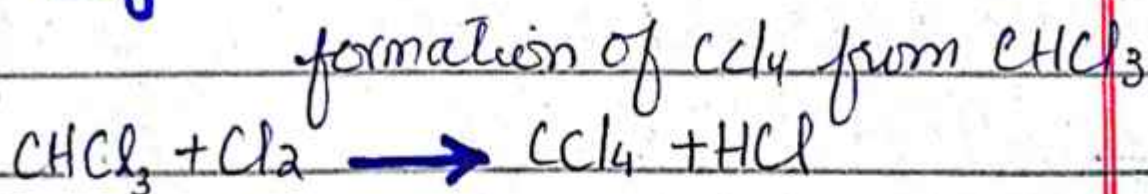 formation of CCl4 from CHCl3
CHCl3 + Cl2 → CCl4 + HCl